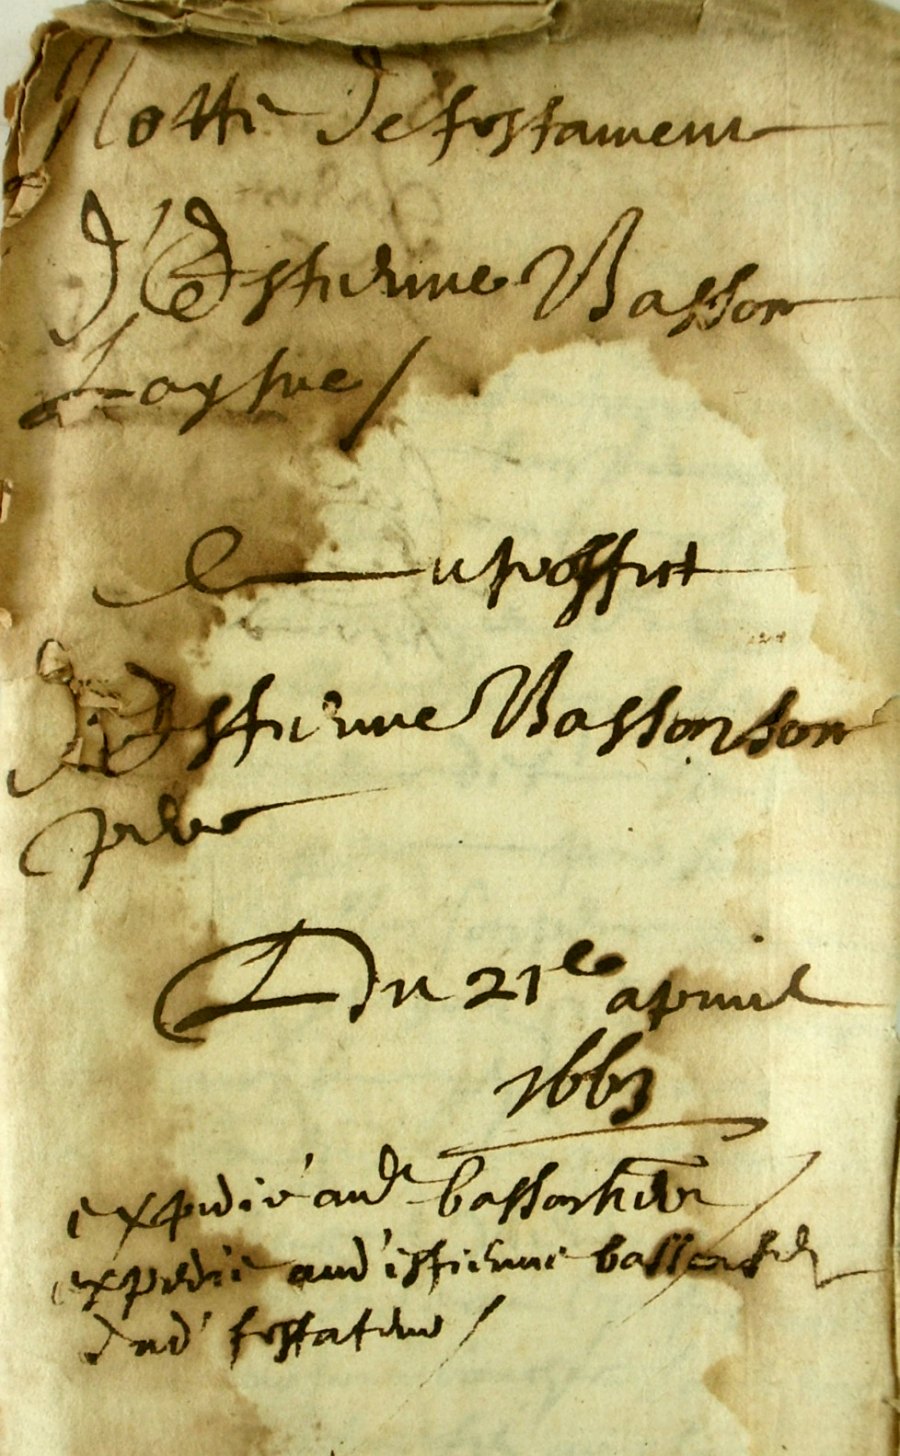 Notte de testament
d'Estienne Basson
Laysne /
au proffict
d'Estienne Basson son
pere
Du 21e apvril
1663
expedié aud basson
expedié aud' estienne basson
dud' testateur /